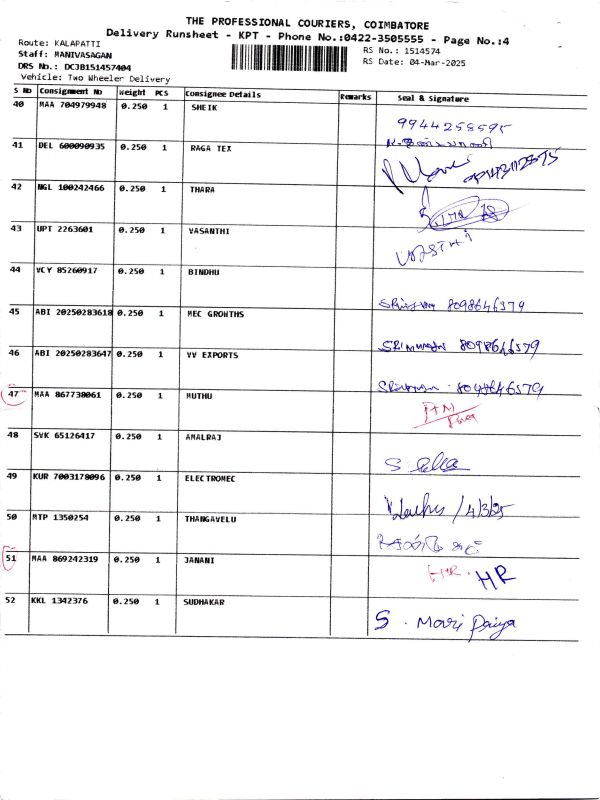 THE PROFESSIONAL COURIERS, COIMBATORE
Delivery Runsheet - KPT - Phone No.:0422-3505555 - Page No.:4
Route: KALAPATTI
Staff: MANIVASAGAN
DRS No.: DCJB151457404
Vehicle: Two Wheeler Delivery
RS No.: 1514574
RS Date: 04-Mar-2025
S No Consignment No Weight PCS Consignee Details Remarks Seal & Signature
40 MAA 704979948 0.250 1 SHEIK 9944258595
41 DEL 600090935 0.250 1 RAGA TEX
42 NGL 100242466 0.250 1 THARA
43 UPT 2263601 0.250 1 VASANTHI
44 VCY 85260917 0.250 1 BINDHU 8098646579
45 ABI 20250283618 0.250 1 MEC GROWTHS SRIMURGAN 8098646579
46 ABI 20250283647 0.250 1 VV EXPORTS 8098646579
47 MAA 867738061 0.250 1 MUTHU
48 SVK 65126417 0.250 1 AMALRAJ
49 KUR 7003178096 0.250 1 ELECTROMEC /4/3/25
50 MTP 1350254 0.250 1 THANGAVELU
51 MAA 869242319 0.250 1 JANANI HR. HR
52 KKL 1342376 0.250 1 SUDHAKAR S. Mari Paiya